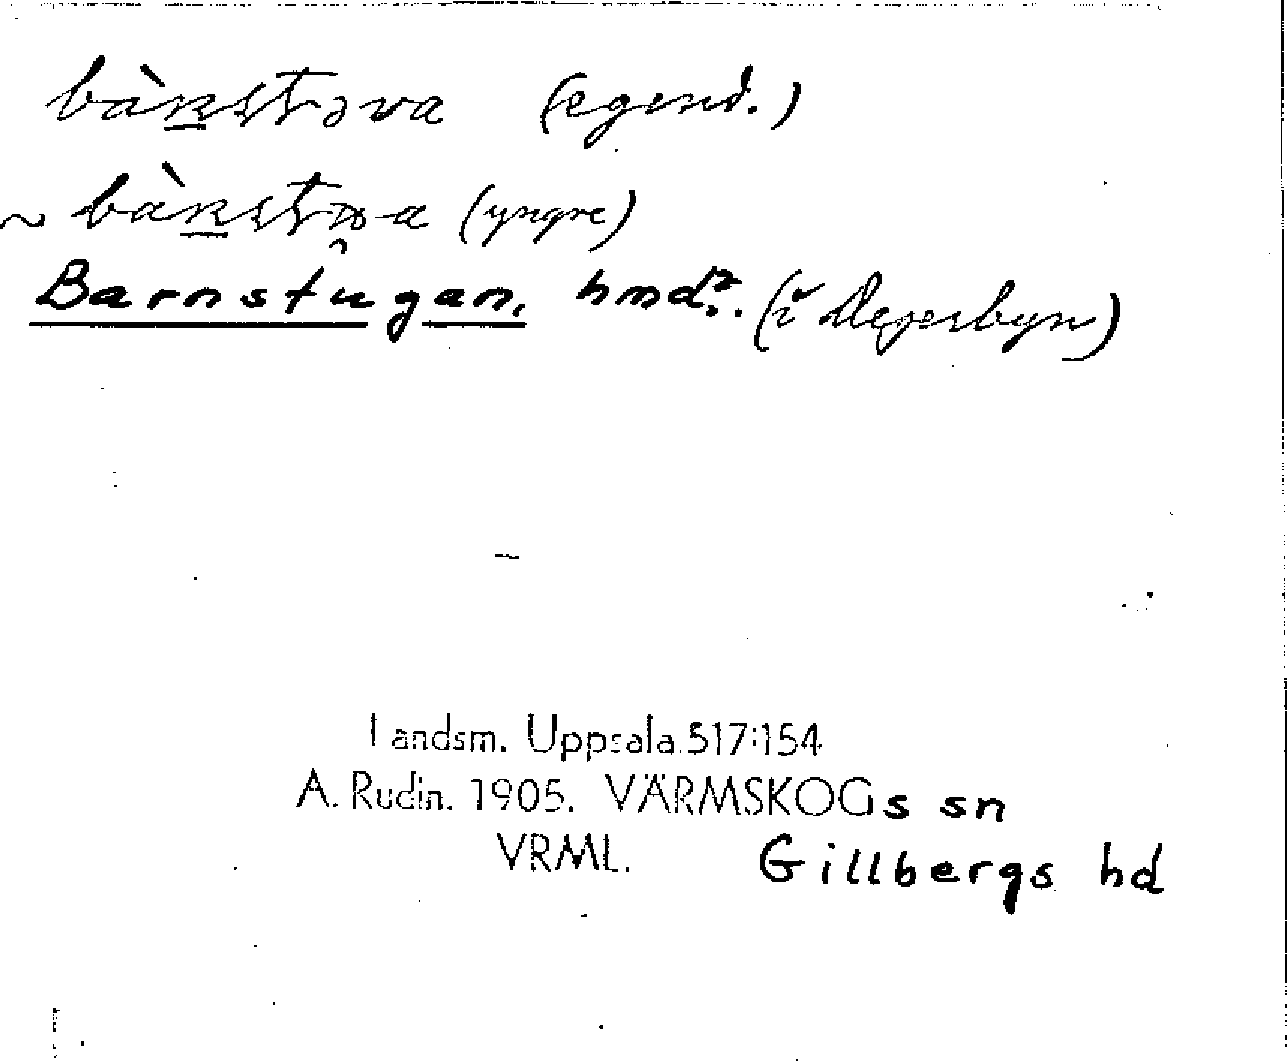 bànstəva (egend.)
~ bànstꝏa (yngre)
Barnstugan. hmd?. (i Degerbyn)
Landsm. Uppsala 517:154
A. Rudin. 1905. VÄRMSKOGs sn
VRML. Gillbergs hd